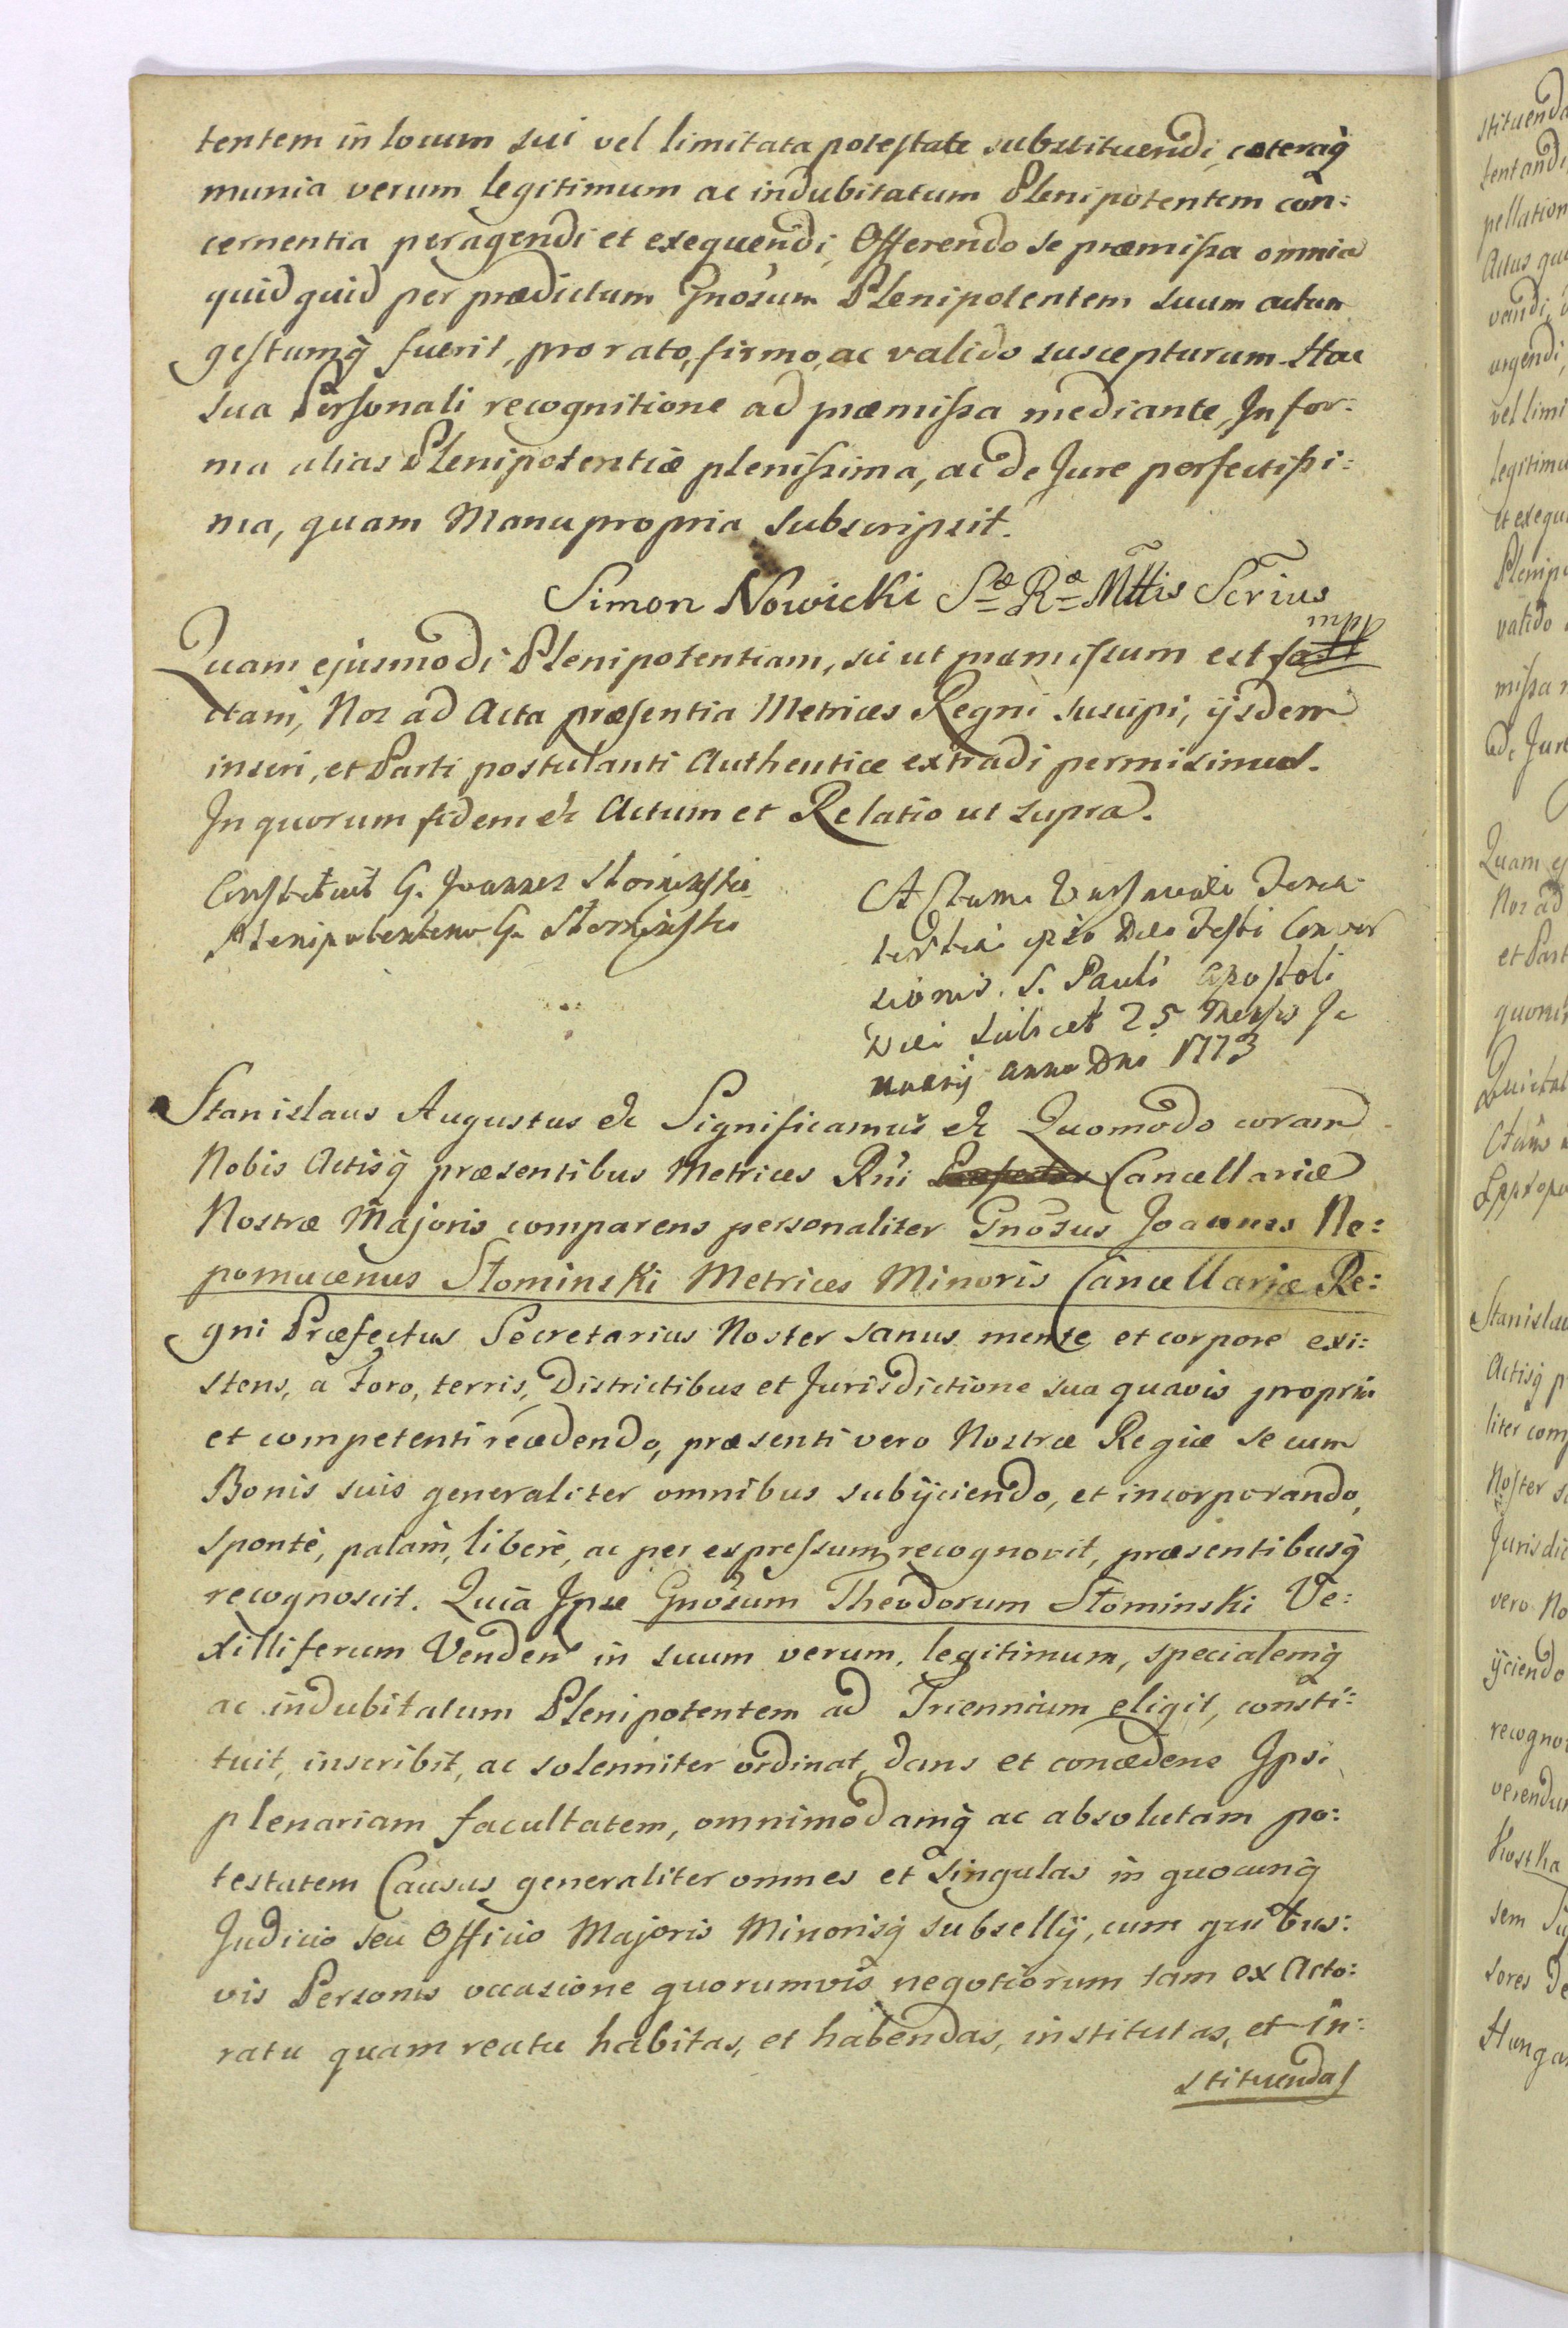 tentem in locum sui vel limitata potestate substituendi, cæteraq̀
munia verum legitimum ac indubitatum Plenipotentem con:
cernentia peragendi et exequendi, Offerendo se præmissa omnia
quidquid per prædictum Gnosum Plenipotentem suum actum
gestumq̀ fuerit, pro rato, firmo, ac valido suscepturum. Hac
sua Personali recognitione ad præmissa mediante, In for:
ma alias Plenipotentiæ plenissima, ac de Jure perfectissi:
ma, quam Manu propria subscripsit.
Simon Nowicki Sæ Ræ Mttis Scrius
mpp
Quam ejusmodi Plenipotentiam, sic ut præmissum est fa
ctam, Nos ad Acta præsentia Metrices Regni suscipi, ijsdem
inseri, et Parti postulanti Authentice extradi permisimus.
In quorum fidem &c Actum et Relatio ut supra.
Constituit G. Joannes Słominski
Plenipotentem G. Słominski
Actum Varsaviæ Feria
tertia ipso Die Festi Conver
sionis S. Pauli Apostoli
Die scilicet 25 Mensis Ja
nuarij Anno Dni 1773
Stanislaus Augustus &c Significamus &c Quomodo coram
Nobis Actisq̀ præsentibus Metrices Rni Cancellariæ
Nostræ Majoris comparens personaliter Gnosus Joannes Ne:
pomucenus Słominski Metrices Minoris Cancellariæ Re:
gni Præfectus Secretarius Noster sanus mente et corpore exi:
stens, a Foro, terris, Districtibus et Jurisdictione sua quavis propria
et competenti recedendo, præsenti vero Nostræ Regiæ se cum
Bonis suis generaliter omnibus subijciendo, et incorporando,
sponte, palam, libere, ac per expressum recognovit, præsentibusq̀
recognoscit. Quia Ipse Gnosum Theodorum Słominski Ve:
xilliferum Venden in suum verum, legitimum, specialemq̀
ac indubitatum Plenipotentem ad Triennium eligit, consti:
tuit, inscribit, ac solenniter ordinat, dans et concedens Ipsi
plenariam facultatem, omnimodamq̀ ac absolutam po:
testatem Causas generaliter omnes et singulas in quocunq̀
Judicio seu Officio Majoris Minorisq̀ subsellij, cum quibus:
vis Personis occasione quorumvis negotiorum tam ex Acto:
ratu quam reatu habitas, et habendas, institutas, et in:
stituendas